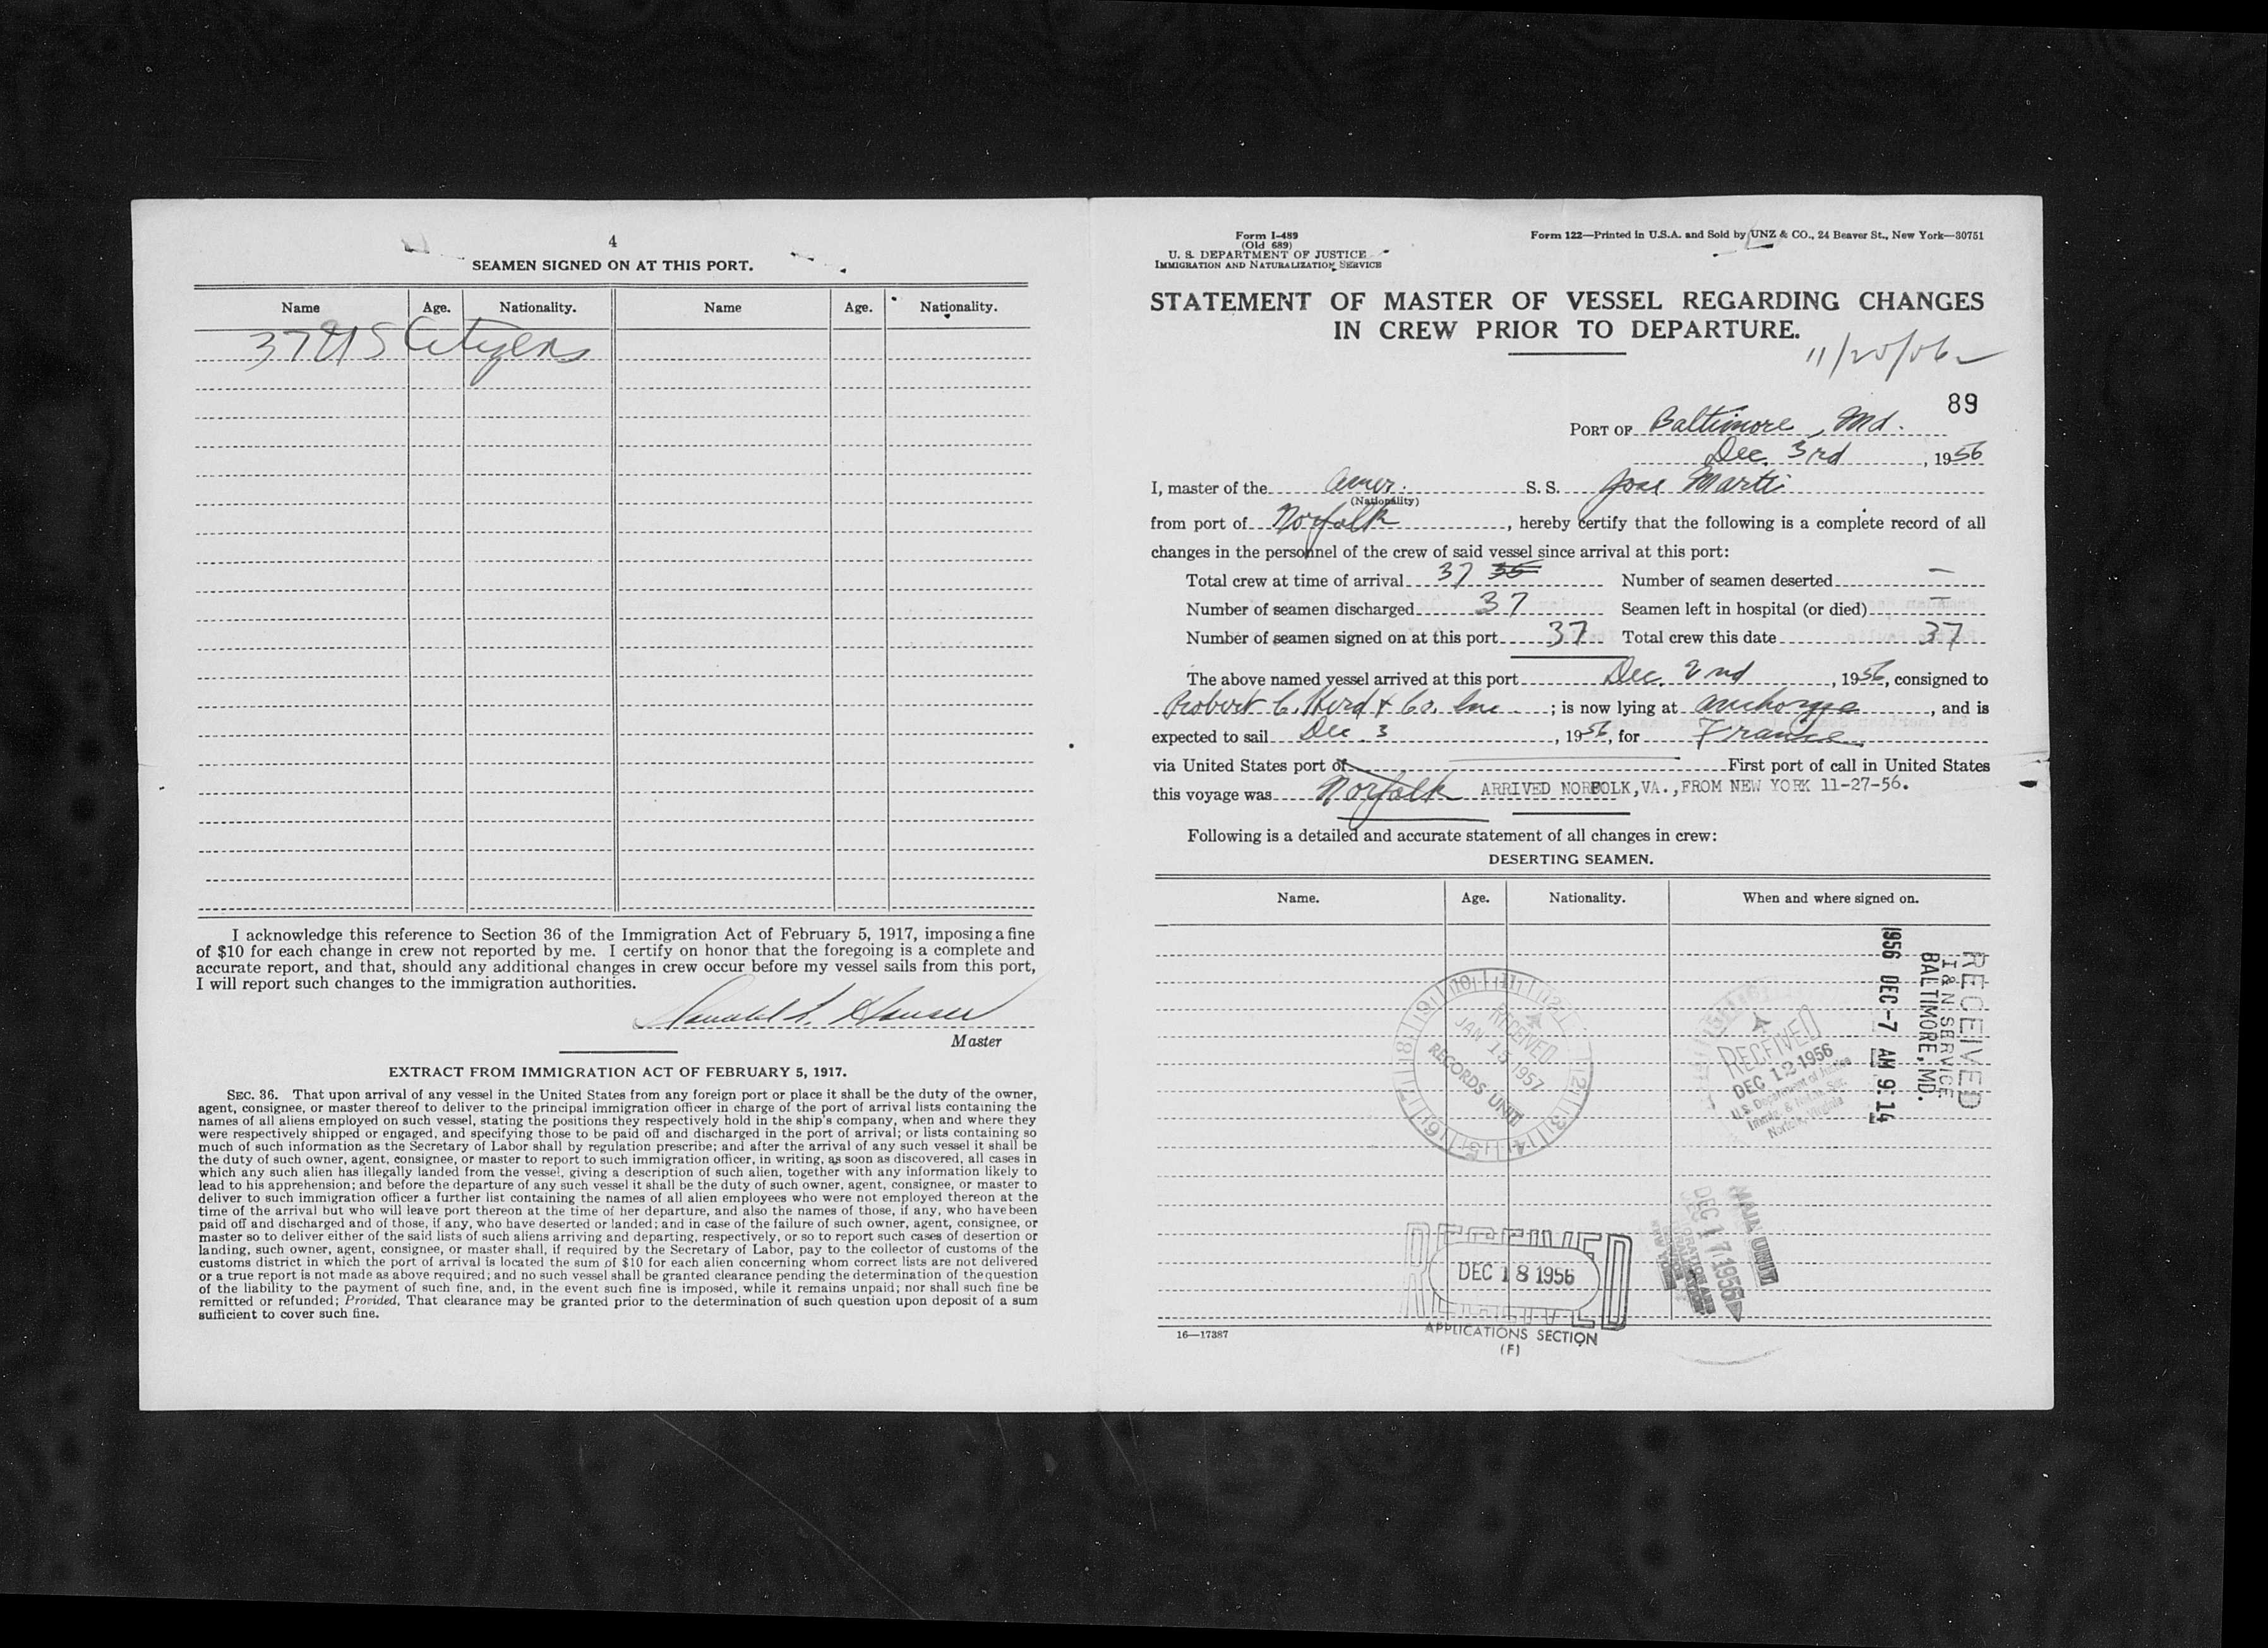 4
SEAMEN SIGNED ON AT THIS PORT.
Name Age. Nationality. Name Age. Nationality.
37 US Citizens
I acknowledge this reference to Section 36 of the Immigration Act of February 5, 1917, imposing a fine
of $10 for each change in crew not reported by me. I certify on honor that the foregoing is a complete and
accurate report, and that, should any additional changes in crew occur before my vessel sails from this port,
I will report such changes to the immigration authorities.
Donald L. Hauser
Master
EXTRACT FROM IMMIGRATION ACT OF FEBRUARY 5, 1917.
SEC. 36. That upon arrival of any vessel in the United States from any foreign port or place it shall be the duty of the owner,
agent, consignee, or master thereof to deliver to the principal immigration officer in charge of the port of arrival lists containing the
names of all aliens employed on such vessel, stating the positions they respectively hold in the ship's company, when and where they
were respectively shipped or engaged, and specifying those to be paid off and discharged in the port of arrival; or lists containing so
much of such information as the Secretary of Labor shall by regulation prescribe; and after the arrival of any such vessel it shall be
the duty of such owner, agent, consignee, or master to report to such immigration officer, in writing, as soon as discovered, all cases in
which any such alien has illegally landed from the vessel, giving a description of such alien, together with any information likely to
lead to his apprehension; and before the departure of any such vessel it shall be the duty of such owner, agent, consignee, or master to
deliver to such immigration officer a further list containing the names of all alien employees who were not employed thereon at the
time of the arrival but who will leave port thereon at the time of her departure, and also the names of those, if any, who have been
paid off and discharged and of those, if any, who have deserted or landed; and in case of the failure of such owner, agent, consignee, or
master so to deliver either of the said lists of such aliens arriving and departing, respectively, or so to report such cases of desertion or
landing, such owner, agent, consignee, or master shall, if required by the Secretary of Labor, pay to the collector of customs of the
customs district in which the port of arrival is located the sum of $10 for each alien concerning whom correct lists are not delivered
or a true report is not made as above required; and no such vessel shall be granted clearance pending the determination of the question
of the liability to the payment of such fine, and, in the event such fine is imposed, while it remains unpaid; nor shall such fine be
remitted or refunded; Provided, That clearance may be granted prior to the determination of such question upon deposit of a sum
sufficient to cover such fine.
Form I-489
(Old 689)
U. S. DEPARTMENT OF JUSTICE
IMMIGRATION AND NATURALIZATION SERVICE
Form 122—Printed in U.S.A. and Sold by UNZ & CO., 24 Beaver St., New York—30751
STATEMENT OF MASTER OF VESSEL REGARDING CHANGES
IN CREW PRIOR TO DEPARTURE.
89
PORT OF Baltimore, Md.
Dec. 3rd, 1956
I, master of the Amer. S. S. Jose Marti
(Nationality)
from port of Norfolk, hereby certify that the following is a complete record of all
changes in the personnel of the crew of said vessel since arrival at this port:
Total crew at time of arrival 37 35 Number of seamen deserted —
Number of seamen discharged 37 Seamen left in hospital (or died) —
Number of seamen signed on at this port 37 Total crew this date 37
The above named vessel arrived at this port Dec. 2nd, 1956, consigned to
Robert C. Herd & Co. Inc.; is now lying at anchorage, and is
expected to sail Dec. 3, 1956, for France
via United States port of First port of call in United States
this voyage was Norfolk ARRIVED NORFOLK,VA.,FROM NEW YORK 11-27-56.
Following is a detailed and accurate statement of all changes in crew:
DESERTING SEAMEN.
Name. Age. Nationality. When and where signed on.
RECEIVED
I & N SERVICE
BALTIMORE, MD.
1956 DEC -7 AM 9:14
RECEIVED
JAN 15 1957
RECORDS UNIT
RECEIVED
DEC 12 1956
U.S. Department of Justice
Immig. & Natz. Ser.
Norfolk, Virginia
MAIN UNIT
DEC 17 1956
RECEIVED
DEC 18 1956
APPLICATIONS SECTION
(F)
16—17387